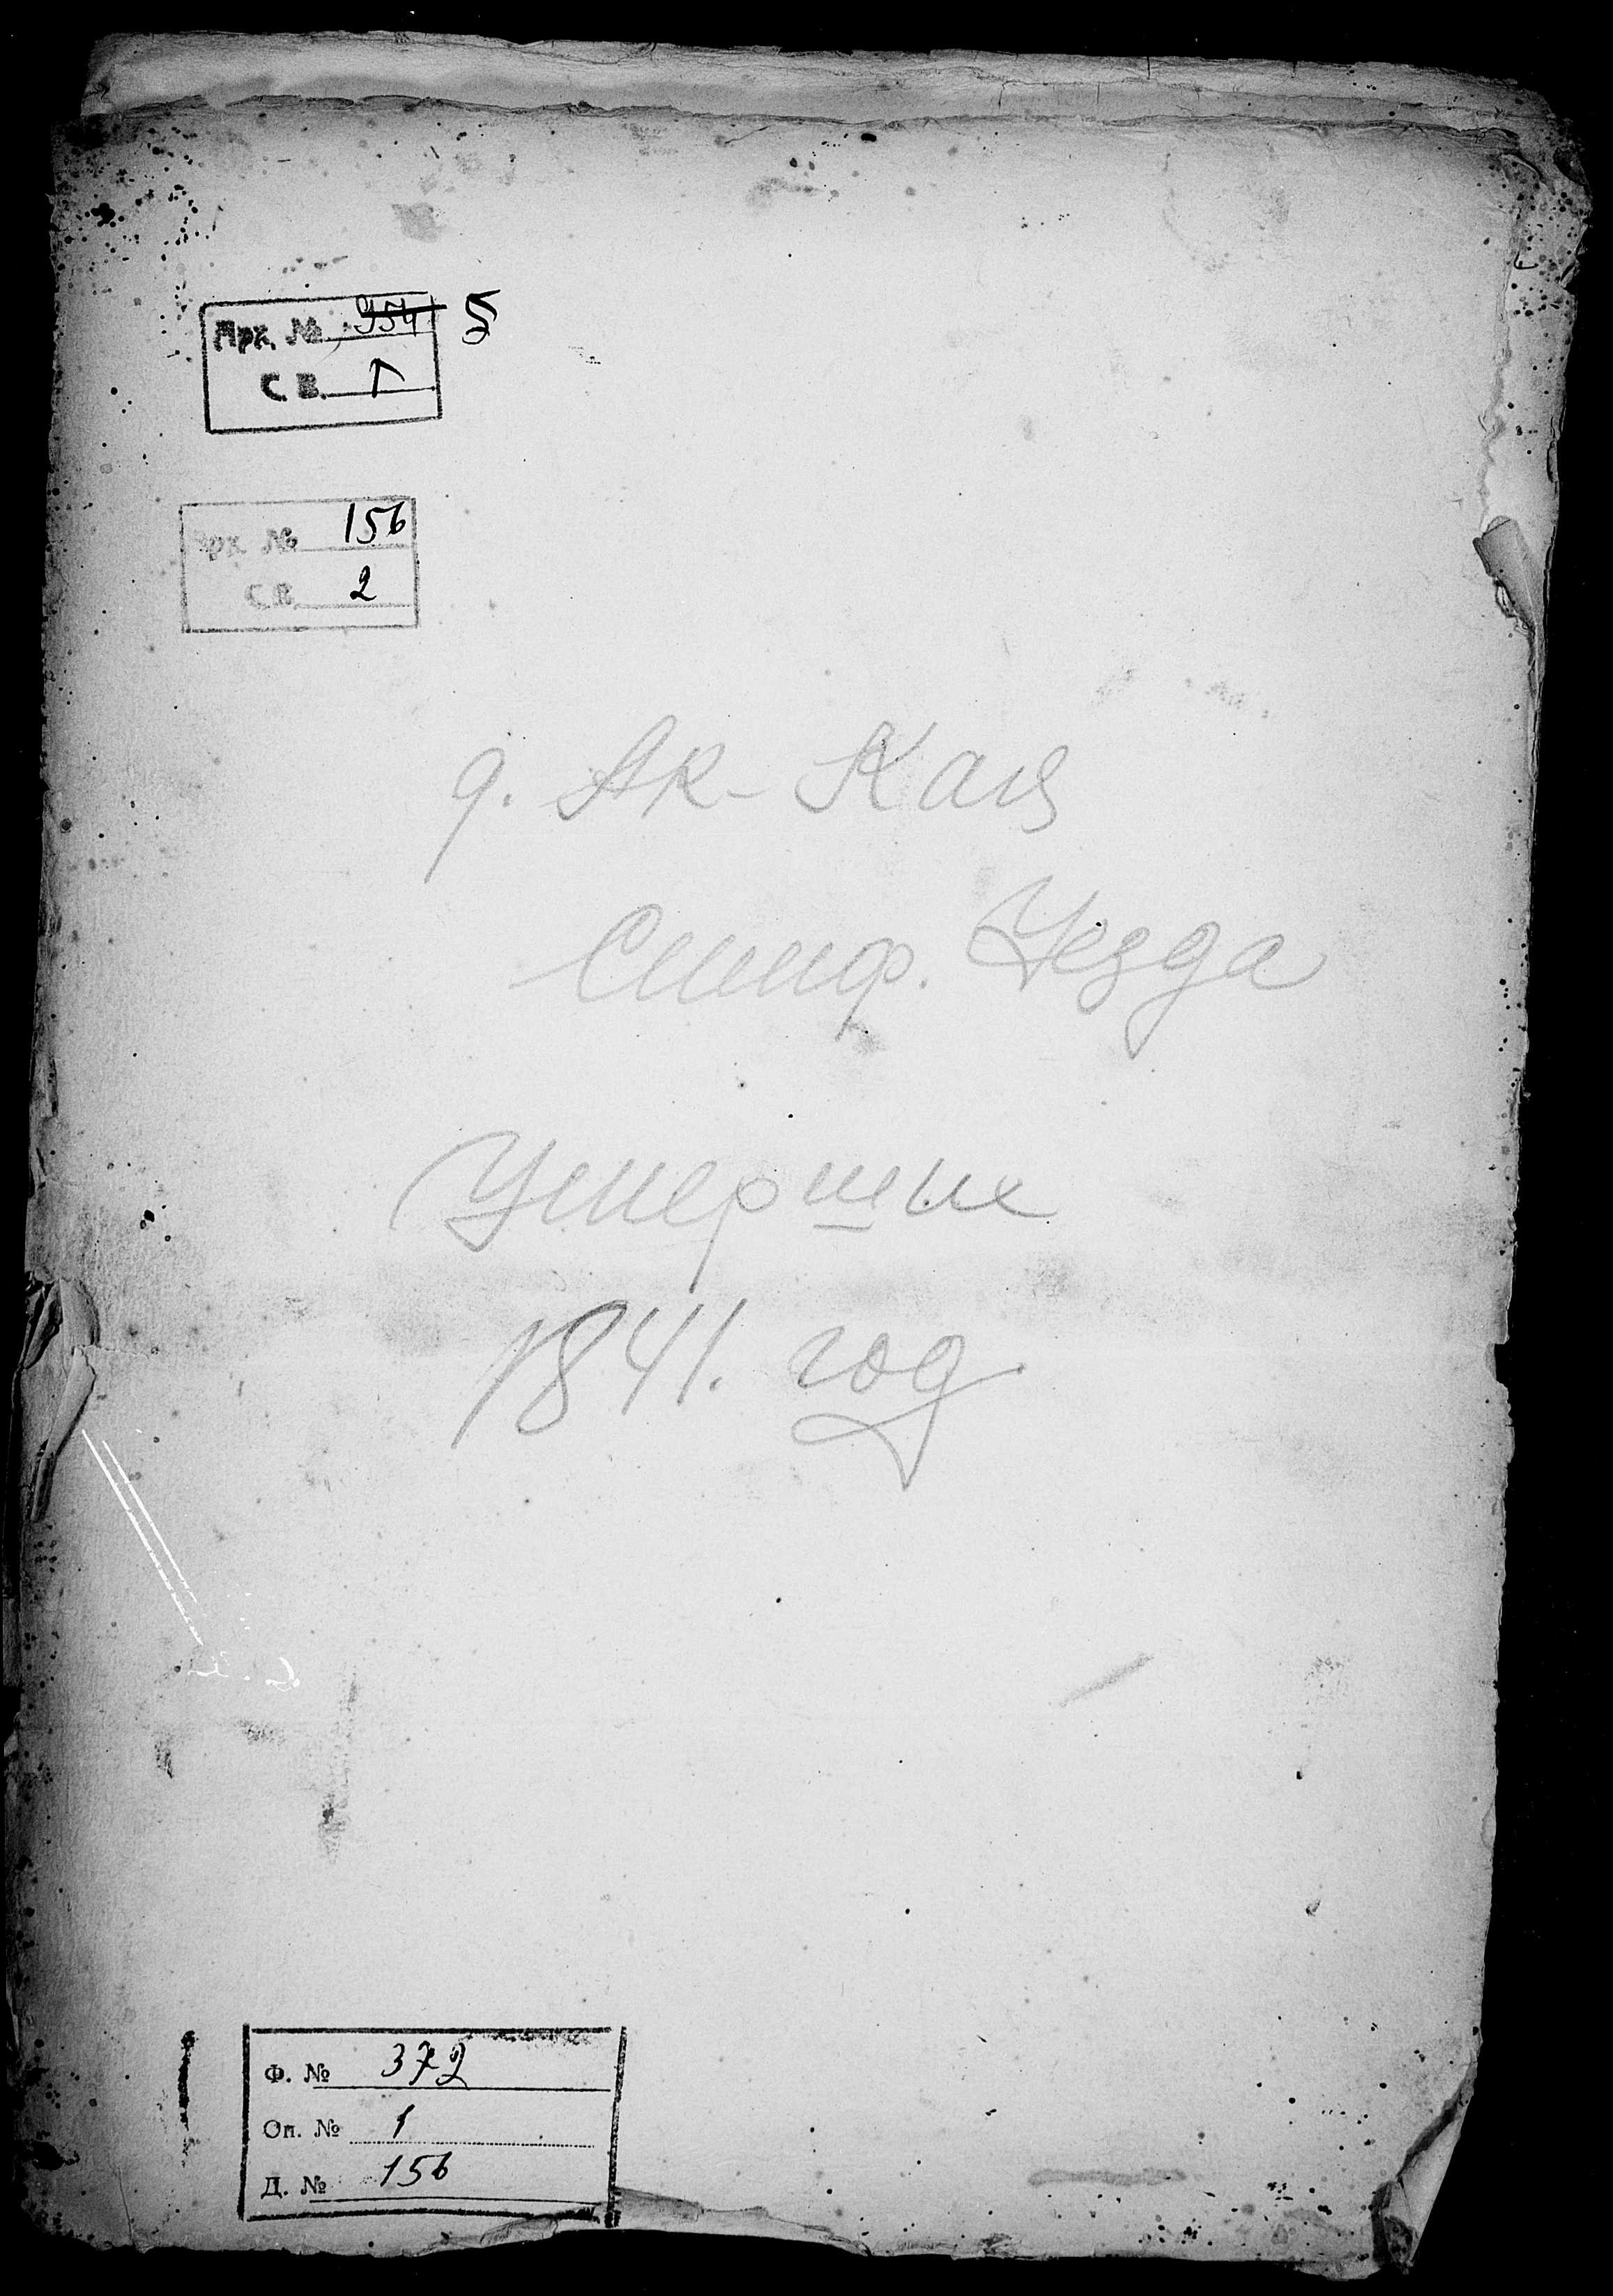 Арх. № 954 5
С.В. 1
Арх. № 156
С.В. 2
д. Ак-Кая
Симф. Уезда
Умерших
1841. год
Ф. № 372
Оп. № 1
Д. № 156